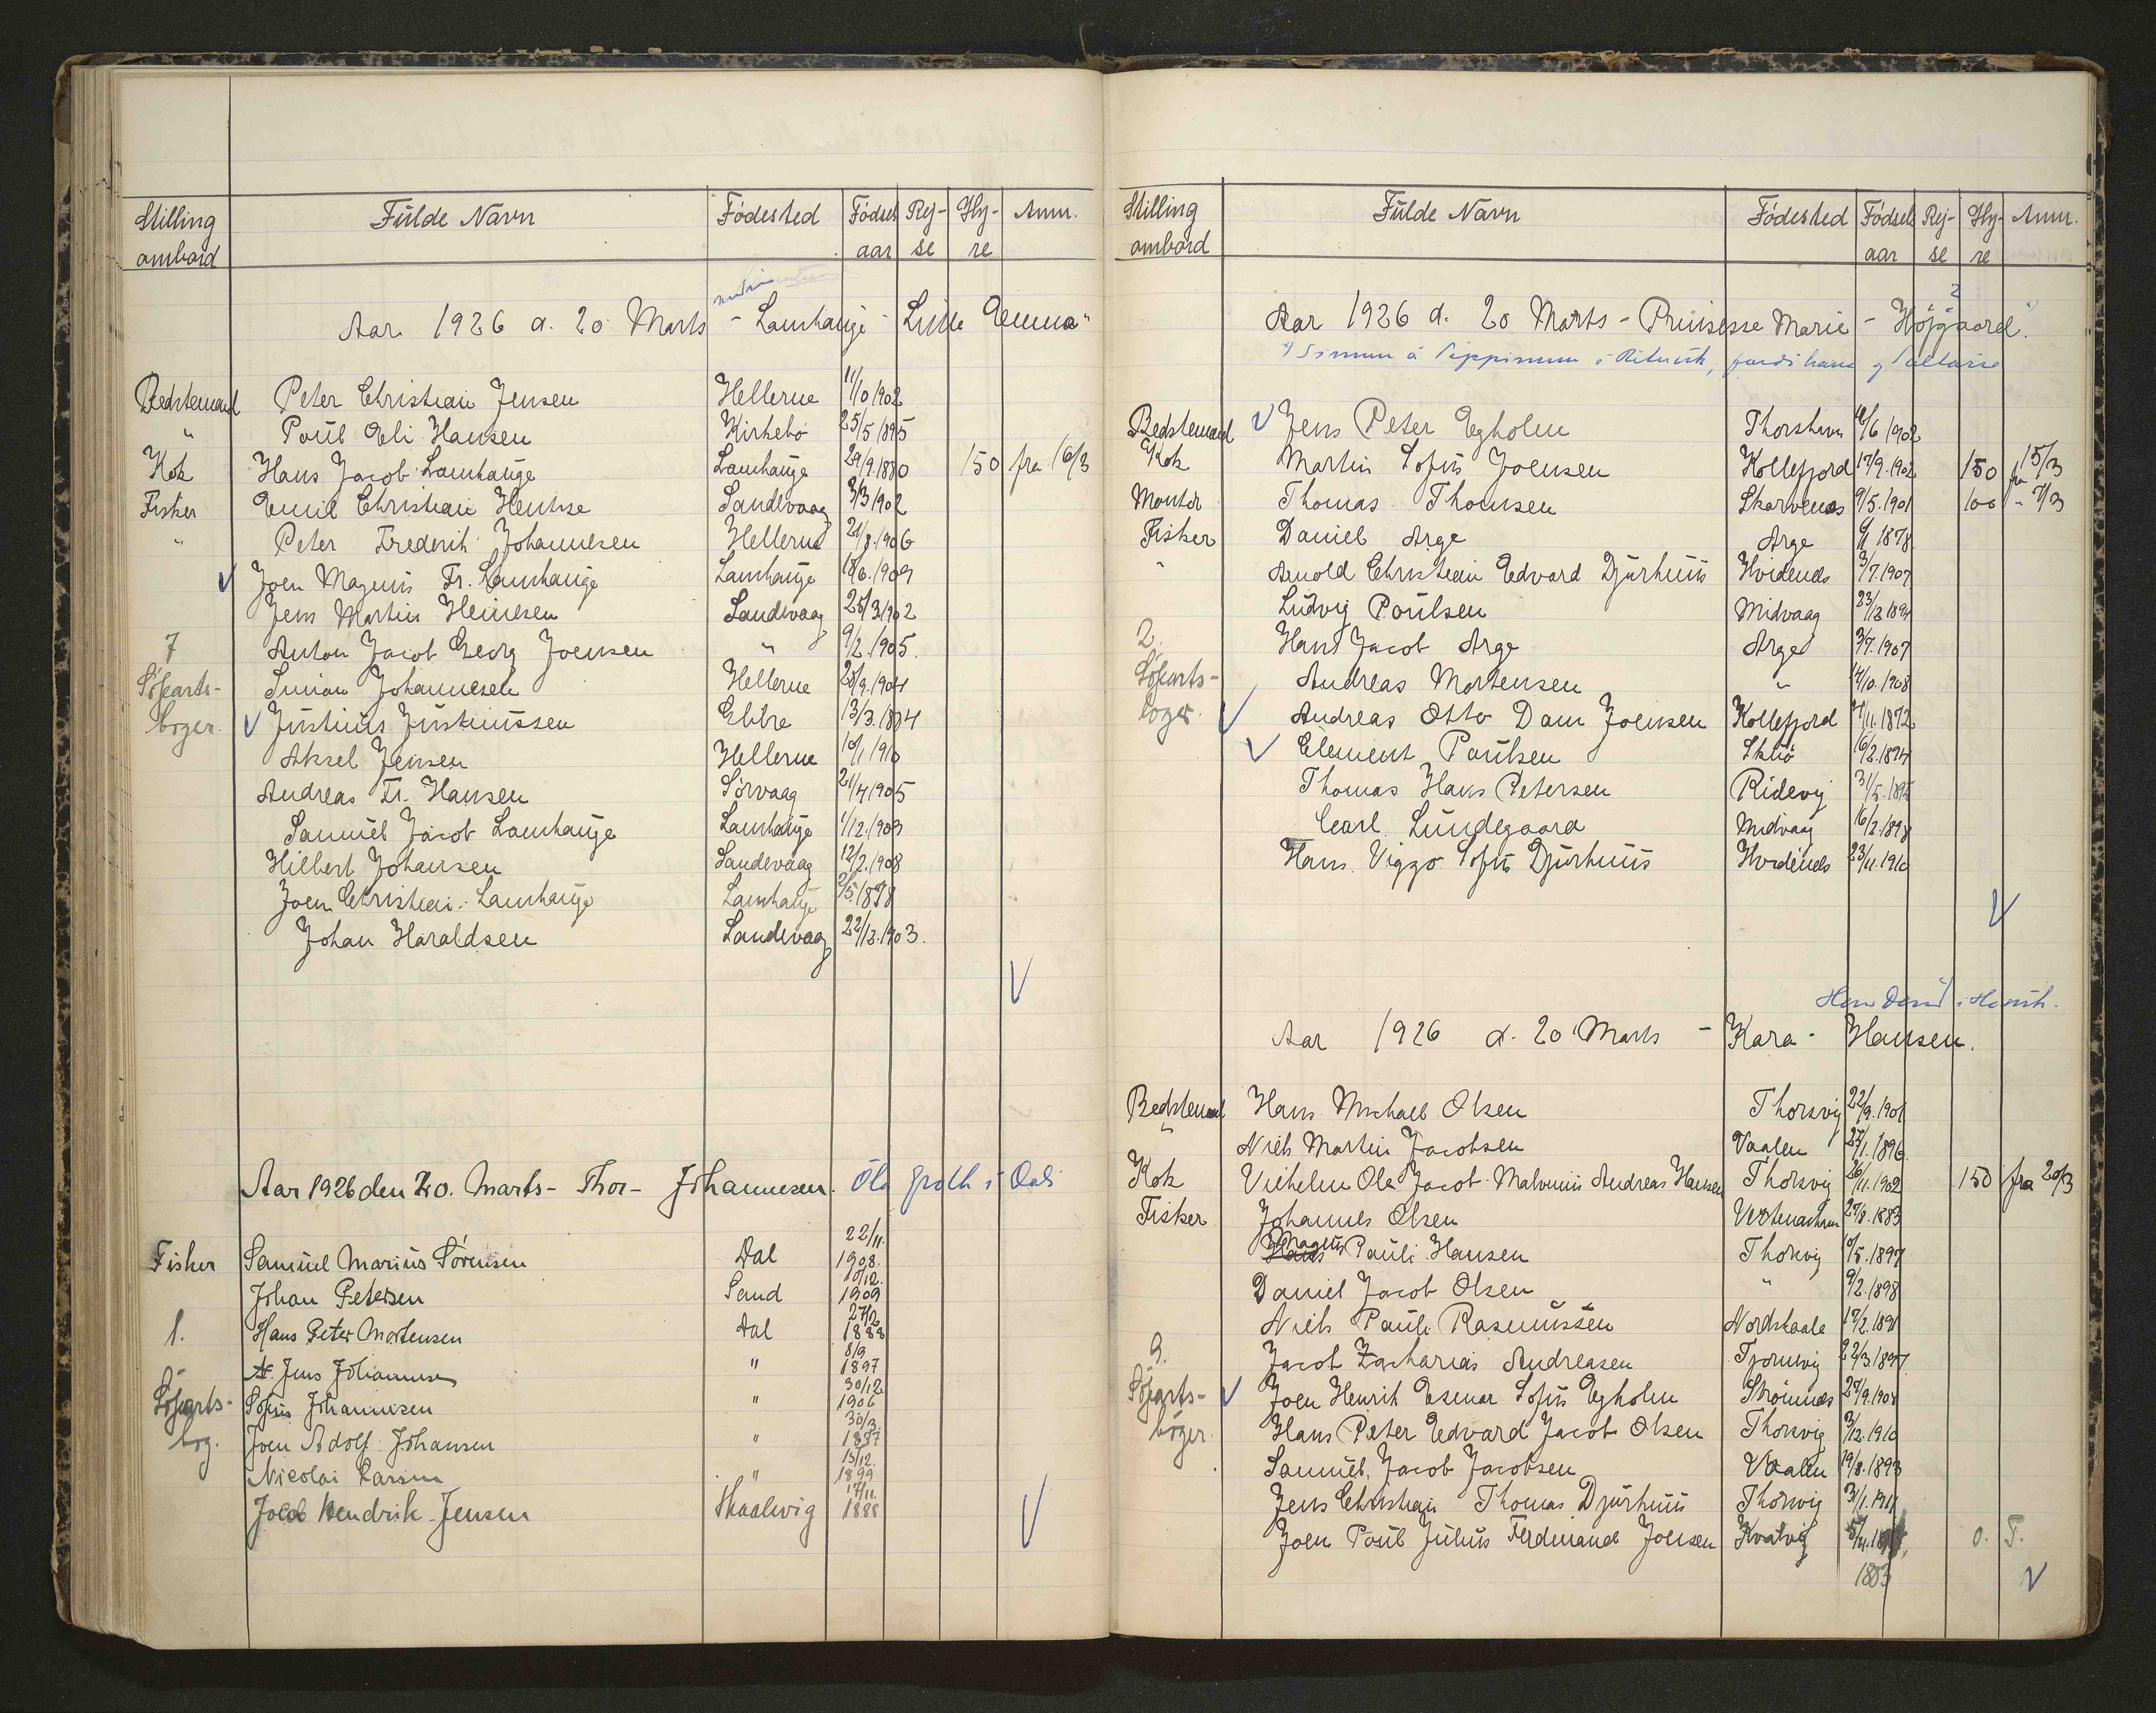 Stilling ombord Fülde Navn Födested Födsels aar Rej-se Hy-re Anm.
Aar 1926 d. 20 Marts - Lamhauge - Lille Emma"
Bedstemand Peter Christian Jensen Hellerne 11/10 1902
" Poul Eli Hansen Kirkebö 25/5 1895
Kok Hans Jacob Lamhauge Lamhauge 29/9.1880 150 fra 16/3
Fisker Emil Christian Hentze Sandevaag 3/3 1902
" Peter Frederik Johannesen Hellerne 21/8.1906
Joen Magnus Fr. Lamhauge Lamhauge 18/6.1909
Jens Martin Heinesen Sandevaag 25/3.1902
7 Anton Jacob Georg Joensen " 9/2.1905.
Söfarts- Simon Johannesen Hellerne 25/9.1904
böger. Justinus Justinussen Glibre 13/3.1894
Aksel Jensen Hellerne 10/1 1910
Andreas Fr. Hansen Sörvaag 21/4 1905
Samuel Jacob Lamhauge Lamhauge 1/12.1903
Hilbert Johansen Sandevaag 12/2.1908
Joen Christian Lamhauge Lamhauge /5.1898
Johan Haraldsen Sandevaag 22/12.1903.
Aar 1926 den 20. Marts - Thor - Johannesen. Öla i Dali
Fisker Samuel Marius Sörensen Dal 22/11. 1908.
Johan Petersen Sand 10/12. 1909
1. Hans Peter Mortensen Dal 27/12 1888
Jens Johannesen " 8/9 1897
Söfarts- Sofus Johannesen " 30/12. 1906
bog. Joen Adolf Johansen " 30/3. 1887
Nicolai Larsen " 13/12. 1899
Jacob Hendrik Jensen Skaalevig 17/11. 1888
Stilling ombord Fülde Navn Födested Födsels aar Rej-se Hy-re Anm.
Aar 1926 d. 20 Marts - Prinsesse Marie - Höjgaard".
Bedstemand Jens Peter Egholm Thorshavn /6 1902
Kok Martin Sofus Joensen Kollefjord 17/9.1902 150 fra 15/3
Montör Thomas Thomsen Skarvenes 9/5.1901 100 " 7/3
Fisker Daniel Arge Arge 1878
" Arnold Christian Edvard Djurhuus Hvidenäs 3/7.1907
Ludvig Poulsen Midvaag 23/12 1894
2. Hans Jacob Arge Arge 3/7.1907
Söfarts- Andreas Mortensen " 14/10.1908
böger. Andreas Otto Dam Joensen Kollefjord /11.1872
Clement Poulsen Skuö 16/2.1894
Thomas Hans Petersen Ridevig 31/5.1895
Carl Lundegaard Midvaag 16/2.1898
Hans Viggo Sofus Djurhuus Hvidenäs 23/11.1910
Aar 1926 d. 20 Marts - Kara - Hansen.
Bedstemand Hans Michael Olsen Thorsvig 22/9.1901
" Niels Martin Jacobsen Vaalen 27/1.1896
Kok Vilhelm Ole Jacob Malvinus Andreas Hansen Thorsvig 26/11.1902 150 fra 20/3
Fisker Johannes Olsen Vestmanhavn 27/8.1883
Magnus Pauli Hansen Thorsvig 10/5.1897
Daniel Jacob Olsen " 9/2.1898
Niels Pauli Rasmussen Nordskaale 17/2.1891
9. Jacob Zacharias Andreasen Tjörnevig 22/3.1897
Söfarts- Joen Henrik Esmar Sofus Egholm Strömnäs 27/9.1904
böger. Hans Peter Edvard Jacob Olsen Thorsvig 3/12.1910
Samuel Jacob Jacobsen Vaalen 19/8.1893
Jens Christian Thomas Djurhuus Thorsvig 31/1.1911
Joen Poul Julius Ferdinand Joensen Kvalvig 1883 0. F.